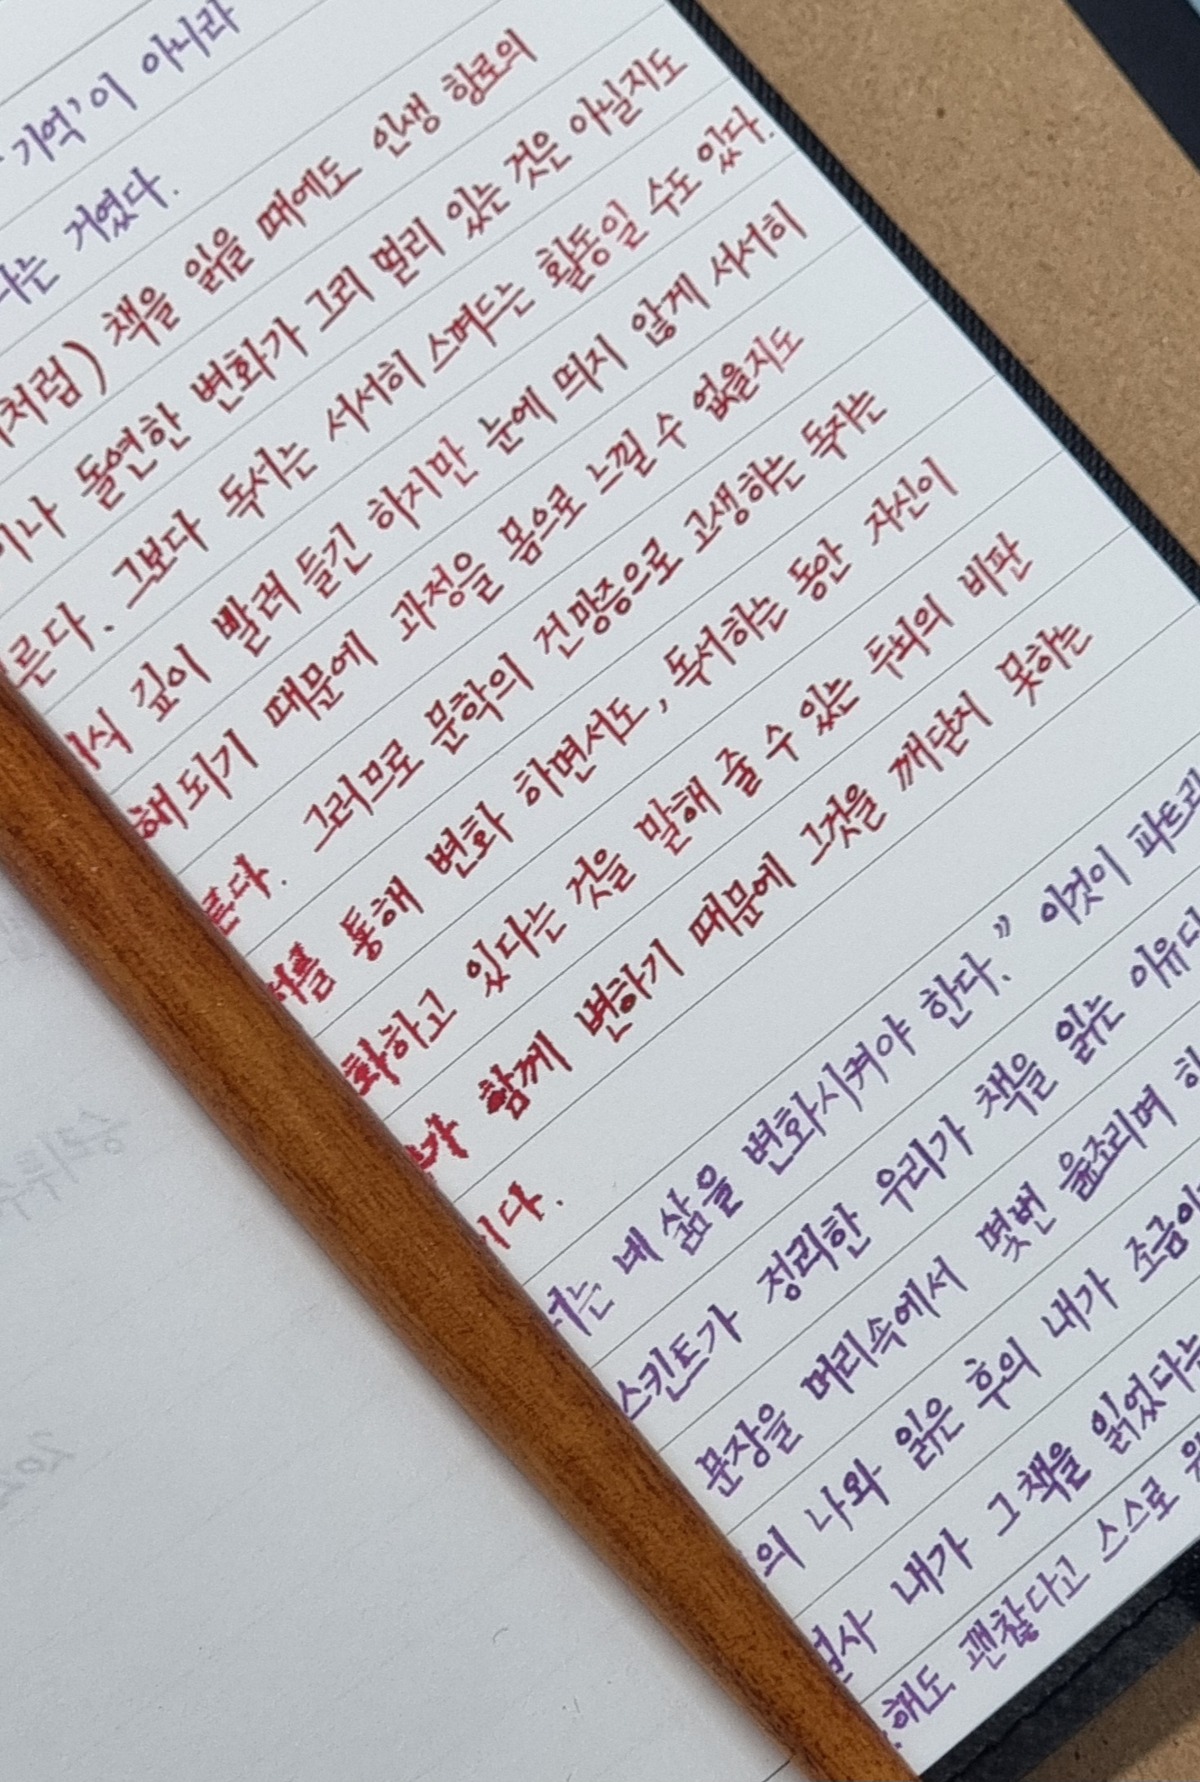 '기억'이 아니라
는 거였다.
처럼) 책을 읽을 때에도 인생 항로의
이나 돌연한 변화가 그리 멀리 있는 것은 아닐지도
른다. 그보다 독서는 서서히 스며드는 활동일 수도 있다.
식 깊이 빨려 들긴 하지만 눈에 띄지 않게 서서히
해되기 때문에 과정을 몸으로 느낄 수 없을지도
른다. 그러므로 문학의 건망증으로 고생하는 독자는
서를 통해 변화 하면서도, 독서하는 동안 자신이
화하고 있다는 것을 말해 줄 수 있는 두뇌의 비판
가 함께 변하기 때문에 그것을 깨닫지 못하는
이다.
너는 네 삶을 변화시켜야 한다." 이것이 파트리
스킨트가 정리한 우리가 책을 읽는 이유다
문장을 머리속에서 몇번 읊조리며
의 나와 읽은 후의 내가 조금이
설사 내가 그 책을 읽었다는
해도 괜찮다고 스스로